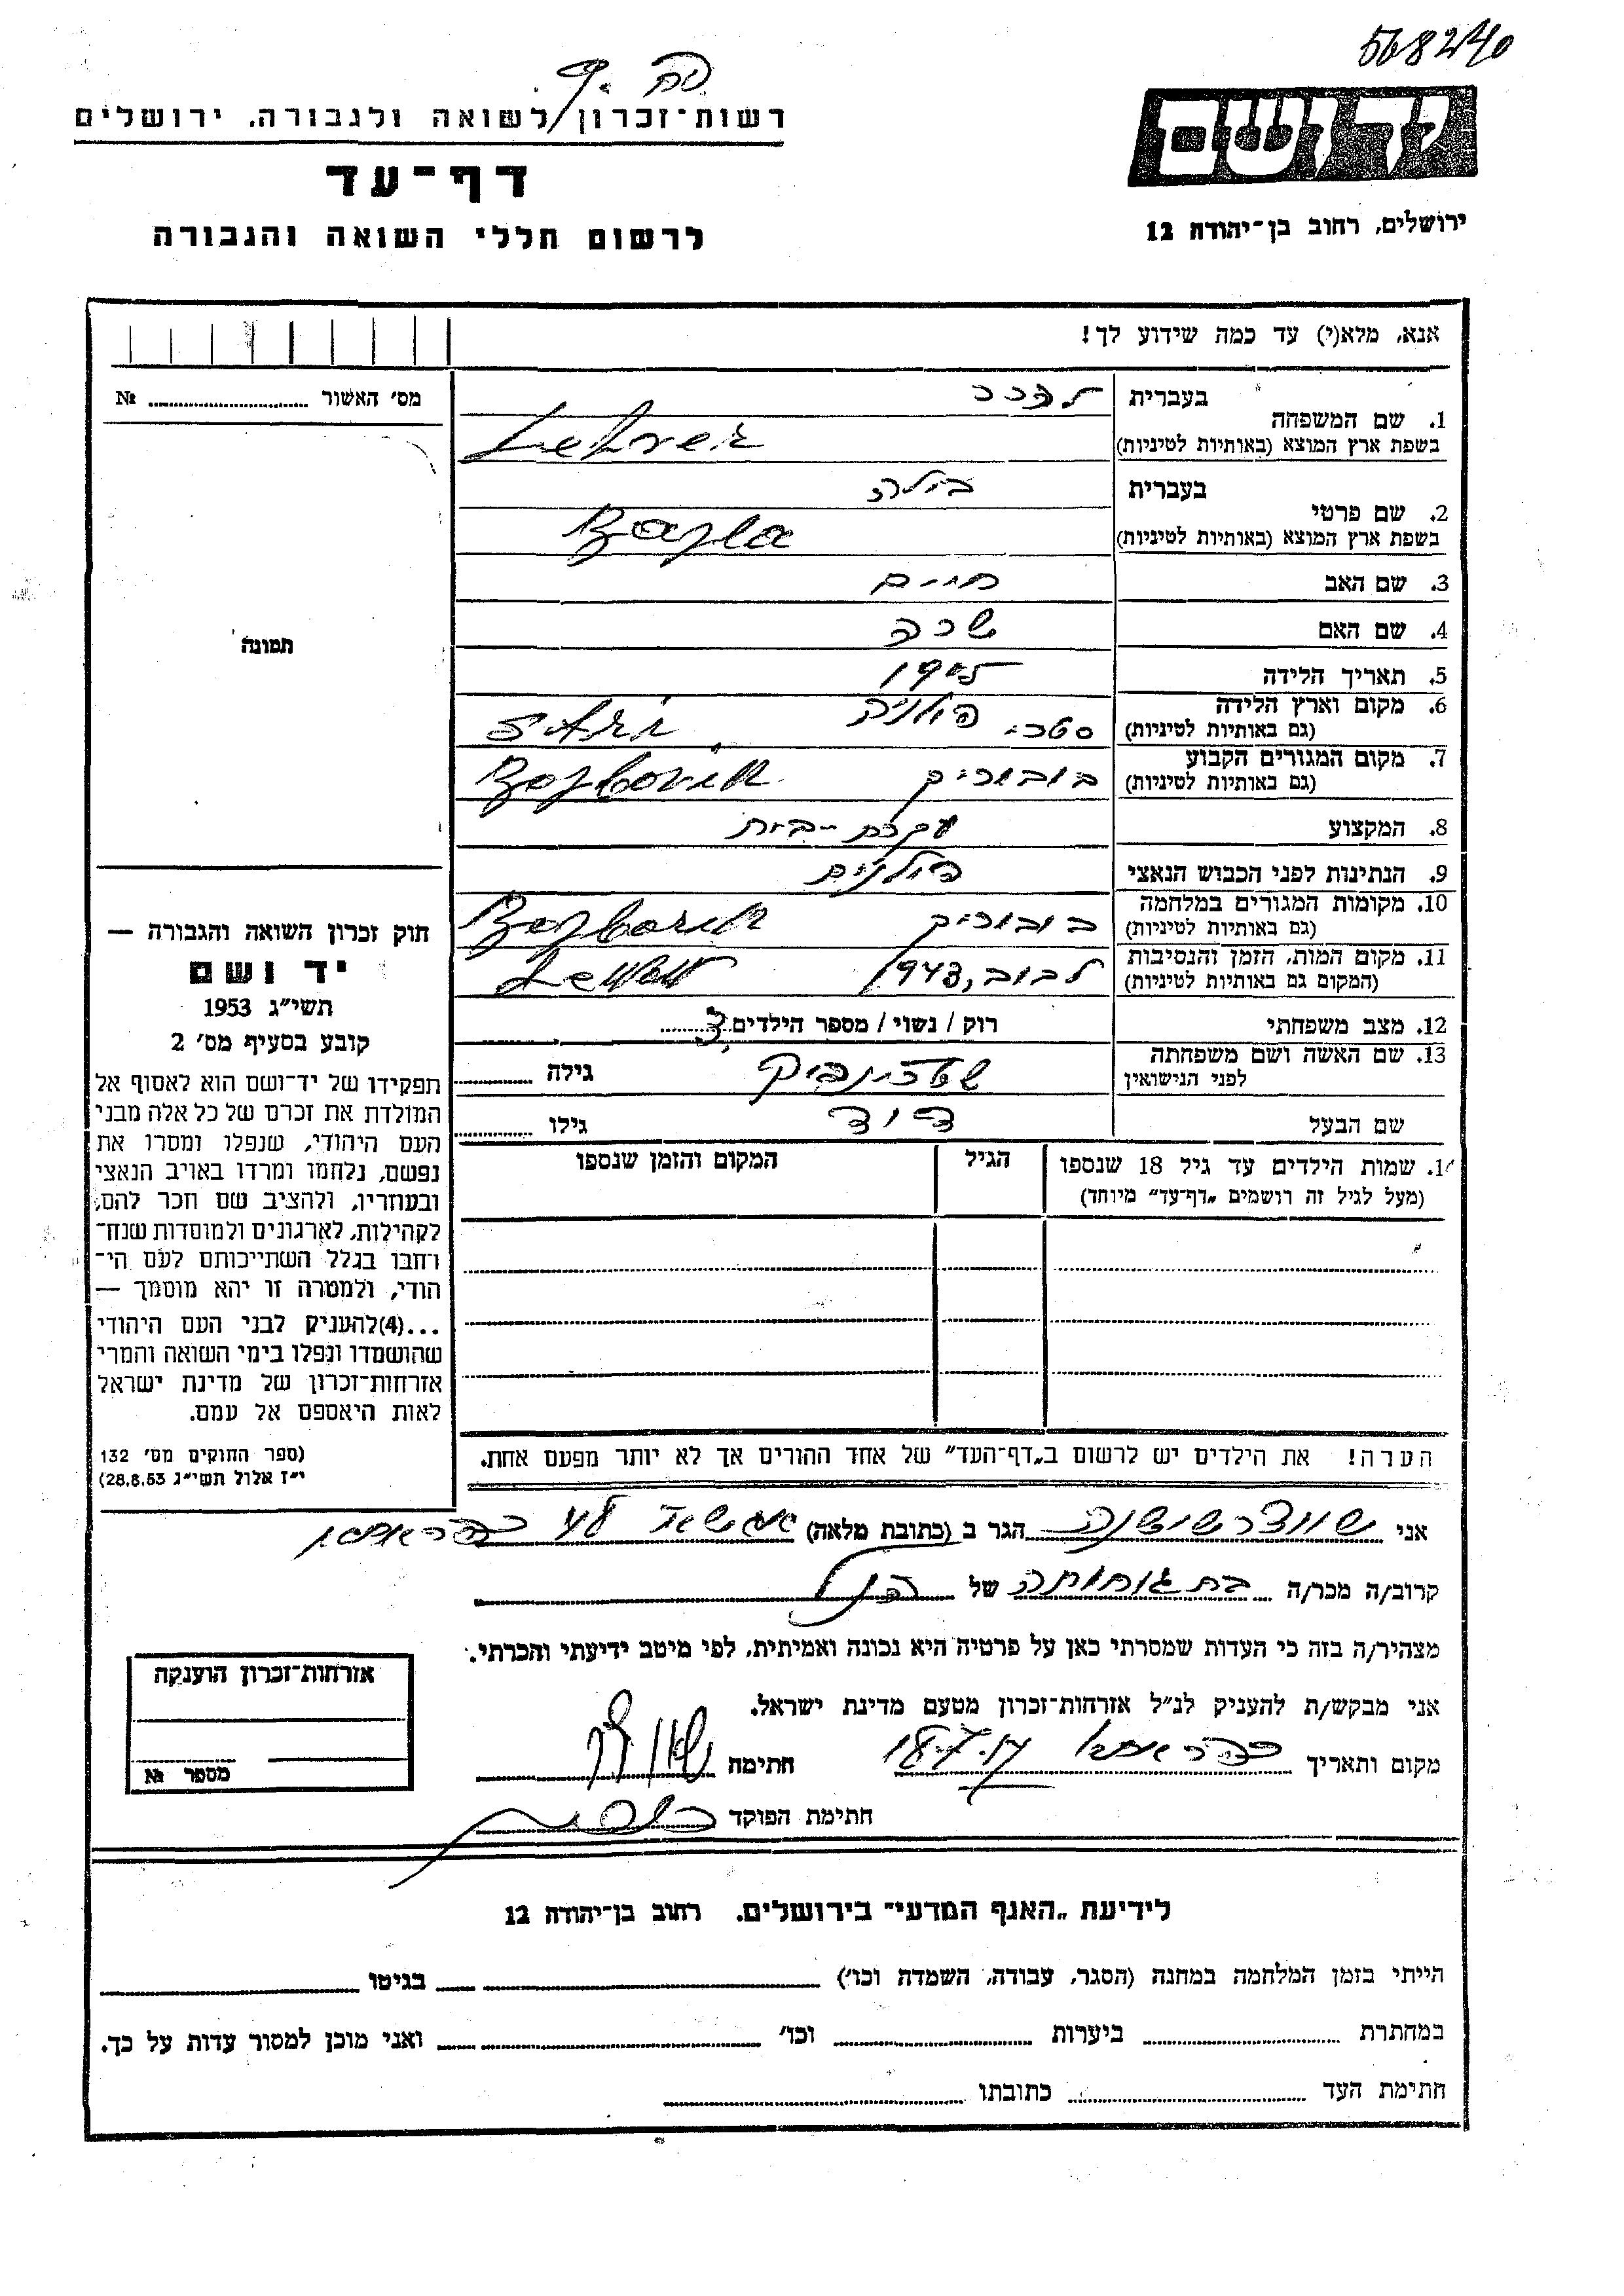 568240
יד ושם
ירושלים, רחוב בן־יהודה 12
רשות־זכרון לשואה ולגבורה. ירושלים
דף־עד
לרשום חללי השואה והגבורה
אנא, מלא(י) עד כמה שידוע לך!
מס׳ האשור № 
1. שם המשפחה
בעברית להרר
בשפת ארץ המוצא (באותיות לטיניות) Lehrer
2. שם פרטי
בעברית ביילה
בשפת ארץ המוצא (באותיות לטיניות) Bajla
3. שם האב חיים
4. שם האם שרה
5. תאריך הלידה
6. מקום וארץ הלידה
(גם באותיות לטיניות) פולניה
7. מקום המגורים הקבוע
(גם באותיות לטיניות)
8. המקצוע עקרת-בית
9. הנתינות לפני הכבוש הנאצי פולנית
10. מקומות המגורים במלחמה
(גם באותיות לטיניות)
11. מקום המות, הזמן והנסיבות
(המקום גם באותיות לטיניות) לבוב, 1943
12. מצב משפחתי רוק / נשוי / מספר הילדים 3
13. שם האשה ושם משפחתה
לפני הנישואין גילה
שם הבעל דוד גילו
14. שמות הילדים עד גיל 18 שנספו הגיל המקום והזמן שנספו
(מעל לגיל זה רושמים „דף־עד״ מיוחד)
הערה! את הילדים יש לרשום ב„דף־העד״ של אחד ההורים אך לא יותר מפעם אחת.
תמונה
חוק זכרון השואה והגבורה —
יד ושם
תשי״ג 1953
קובע בסעיף מס׳ 2
תפקידו של יד־ושם הוא לאסוף אל
המולדת את זכרם של כל אלה מבני
העם היהודי, שנפלו ומסרו את
נפשם, נלחמו ומרדו באויב הנאצי
ובעוזריו, ולהציב שם וזכר להם,
לקהילות, לארגונים ולמוסדות שנח־
רחבו בגלל השתייכותם לעם הי־
הודי, ולמטרה זו יהא מוסמך —
...(4)להעניק לבני העם היהודי
שהושמדו ונפלו בימי השואה והמרי
אזרחות־זכרון של מדינת ישראל
לאות היאספם אל עמם.
(ספר החוקים מס׳ 132
י״ז אלול תשי״ג 28.8.53)
אני הגר ב (כתובת מלאה)
קרוב/ה מכר/ה של הנ״ל
מצהיר/ה בזה כי העדות שמסרתי כאן על פרטיה היא נכונה ואמיתית, לפי מיטב ידיעתי והכרתי.
אני מבקש/ת להעניק לנ״ל אזרחות־זכרון מטעם מדינת ישראל.
מקום ותאריך חתימה
חתימת הפוקד
אזרחות־זכרון הוענקה
מספר №
לידיעת „האגף המדעי״ בירושלים. רחוב בן־יהודה 12
הייתי בזמן המלחמה במחנה (הסגר, עבודה, השמדה וכו׳) בגיטו
במחתרת ביערות וכו׳ ואני מוכן למסור עדות על כך.
חתימת העד כתובתו